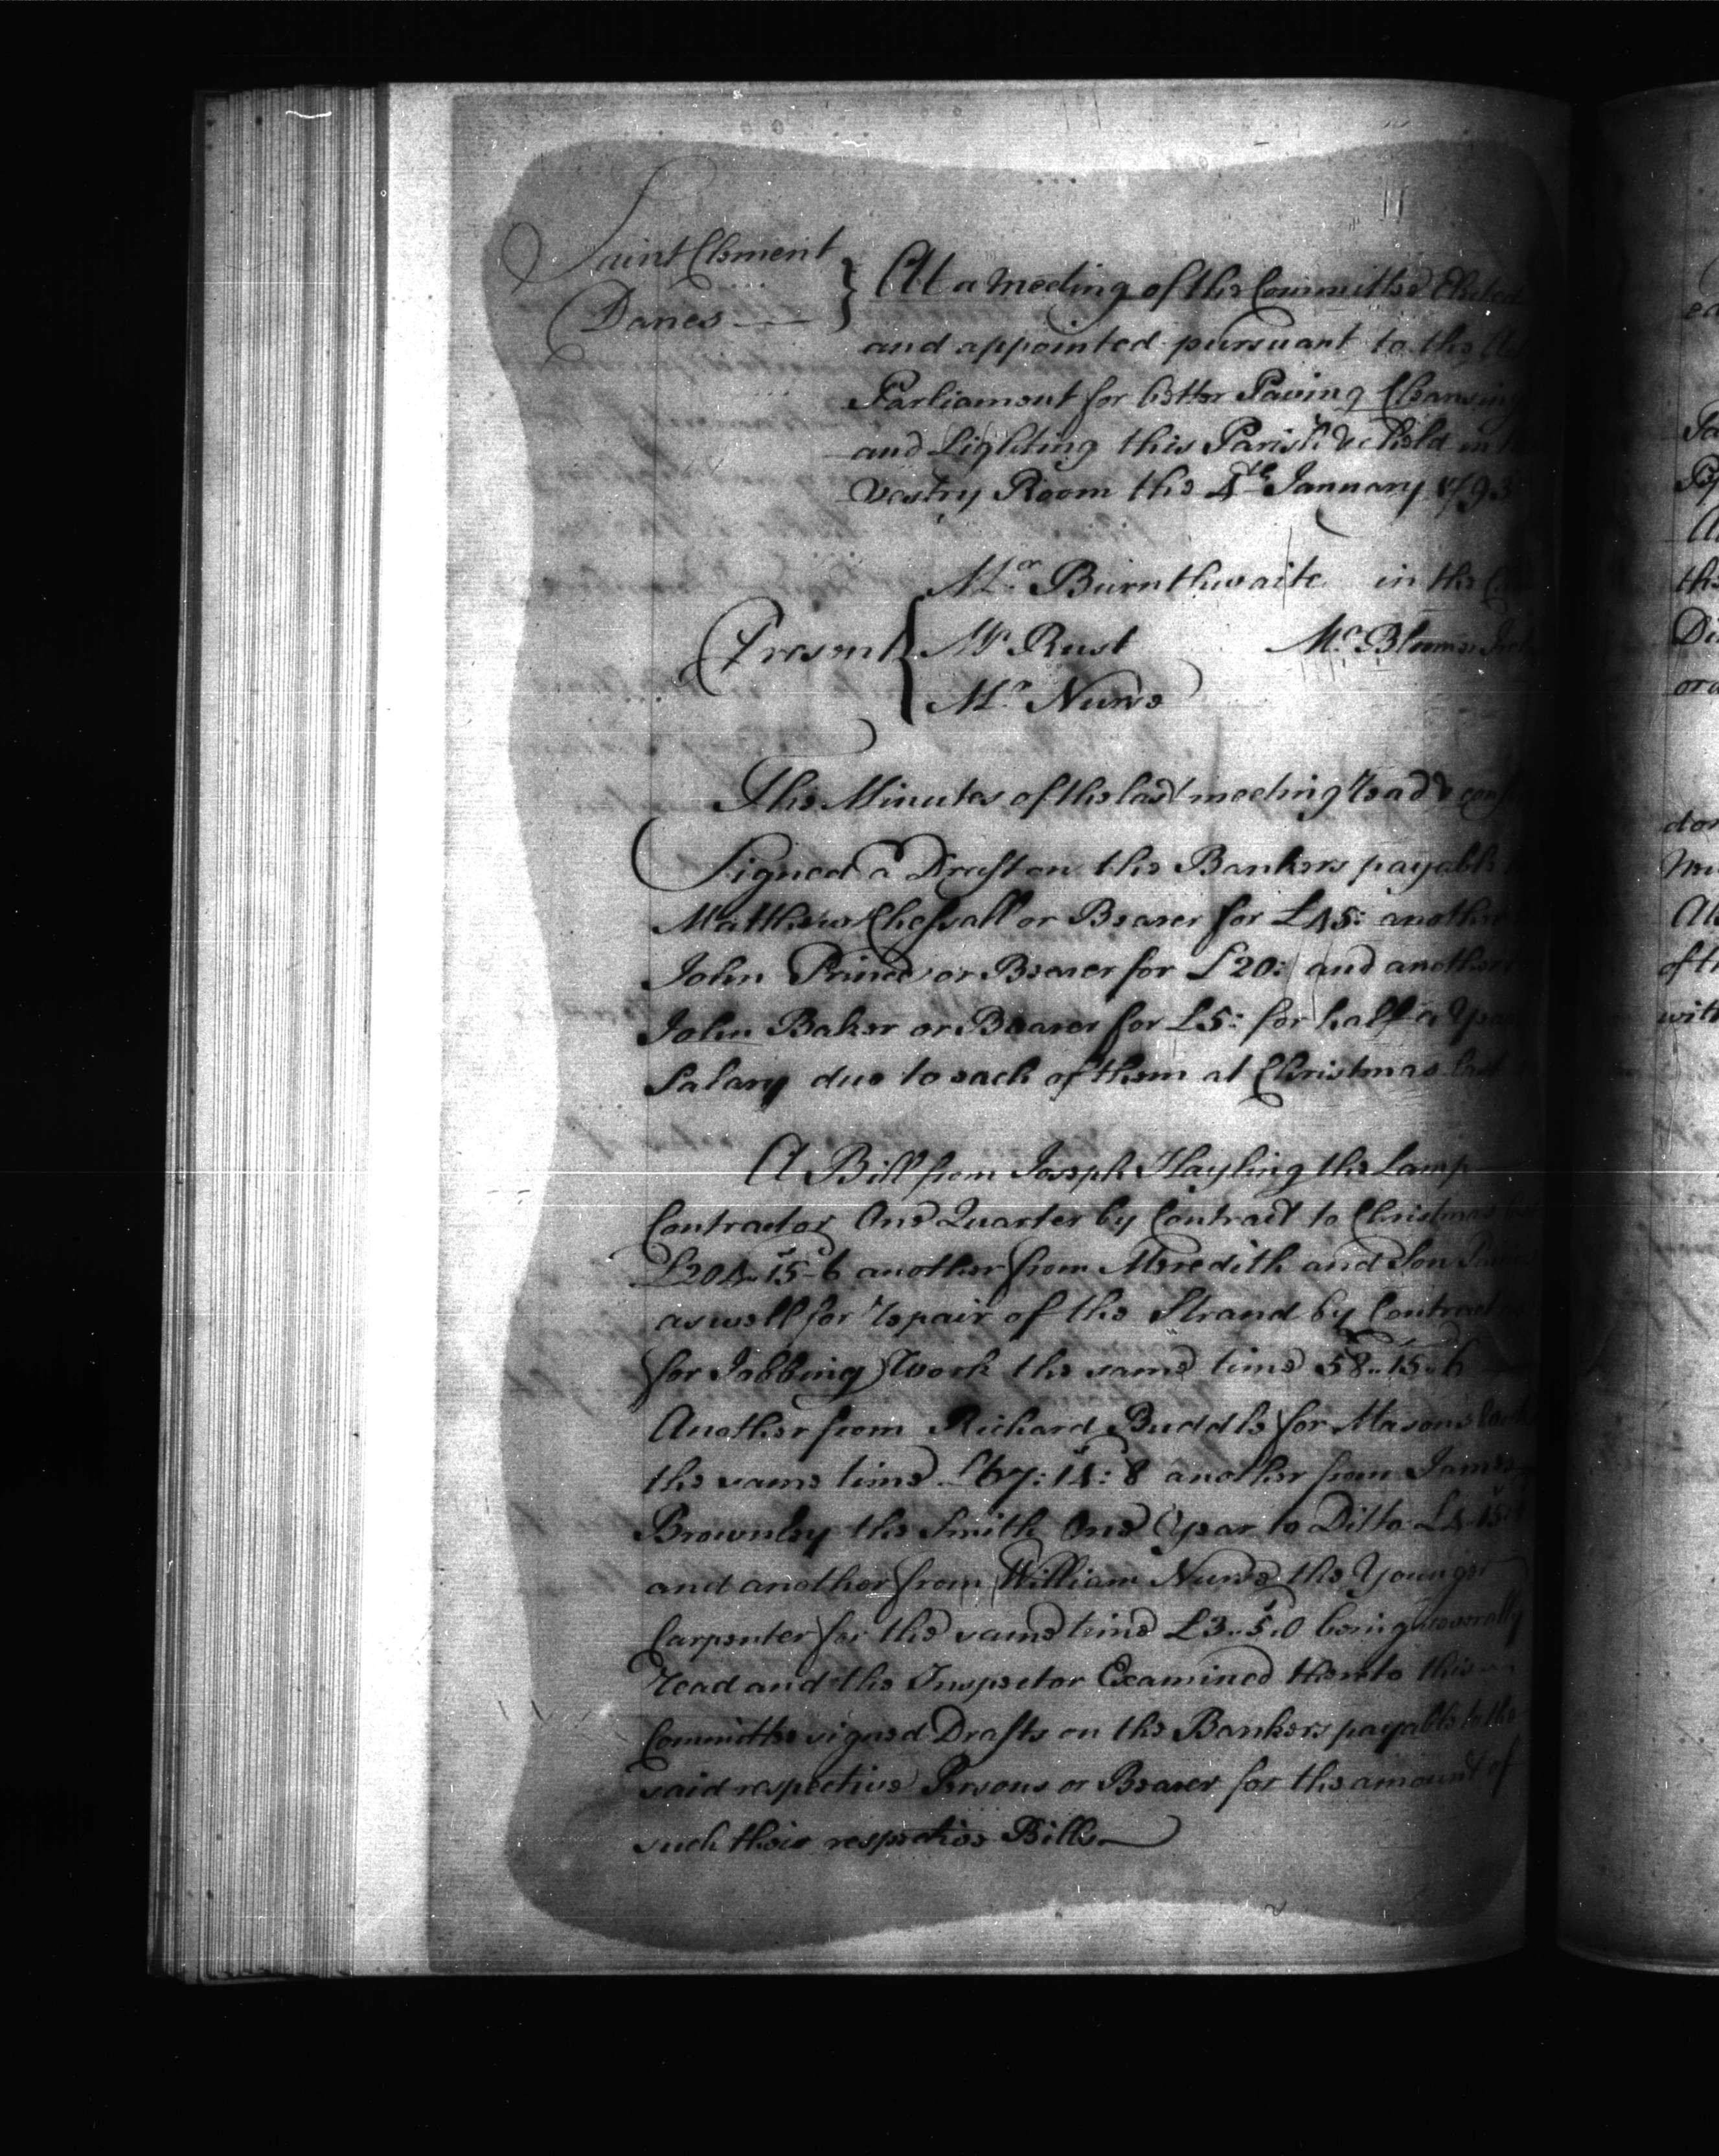 Saint Clement
Danes
At a Meeting of the Committee Elected
and appointed pursuant to the Act
Parliament for better Paving Cleansing
and Lighting this Parish &c held in
Vestry Room the 4th January 1793
Mr. Burnthwaite in the
Present
Mr Rust Mr.
Mr. Nurse
The Minutes of the last meeting read &
Signed a Draft on the Bankers payable
Matthew Chessall or Bearer for £45: another
John Prince or Bearer for £20: and another
John Baker or Bearer for £5: for half a Year
Salary due to each of them at Christmas last
A Bill from Joseph Hayling the Lamp
Contractor One Quarter by Contract to Christmas last
£204..15-6 another from Meredith and Son
as well for repair of the Strand by Contract
for Jobbing Work the same time 58..15..6
Another from Richard Buddle for Masons
the same time £67:14:8 another from James
Brownley the Smith One Year to Ditto £4-15:
and another from William Nurse the Younger
Carpenter for the same time £3..5.0 being severally
read and the Inspector Examined thereto this
Committee signed Drafts on the Bankers payable to the
said respective Persons or Bearer for the amount of
such their respective Bills